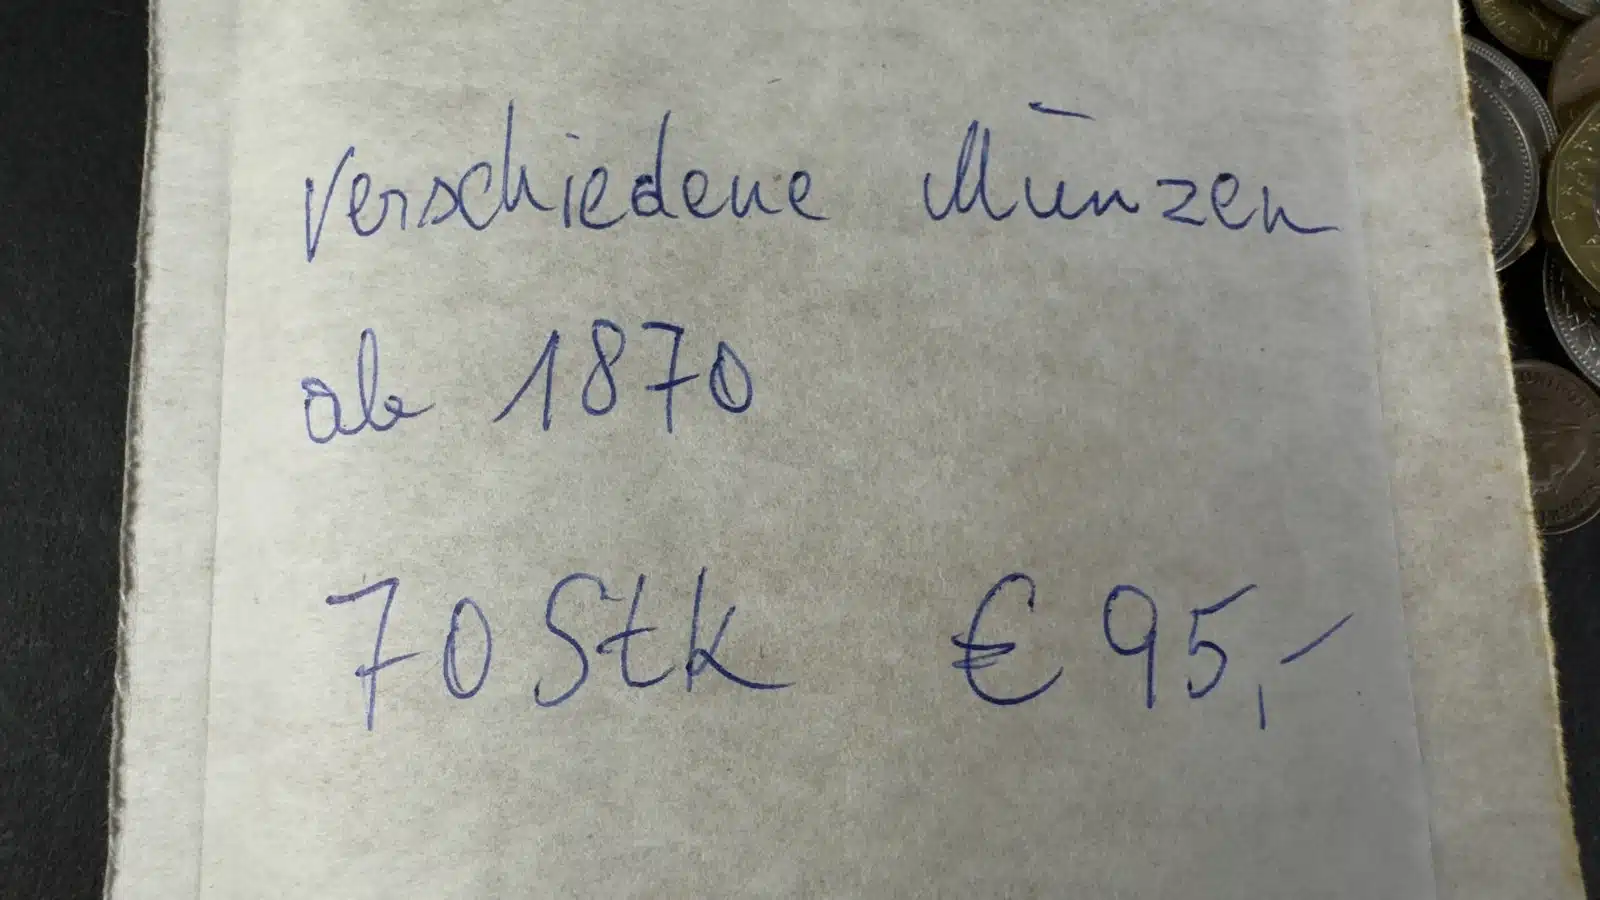 verschiedene Münzen
ab 1870
70 Stk € 95,-